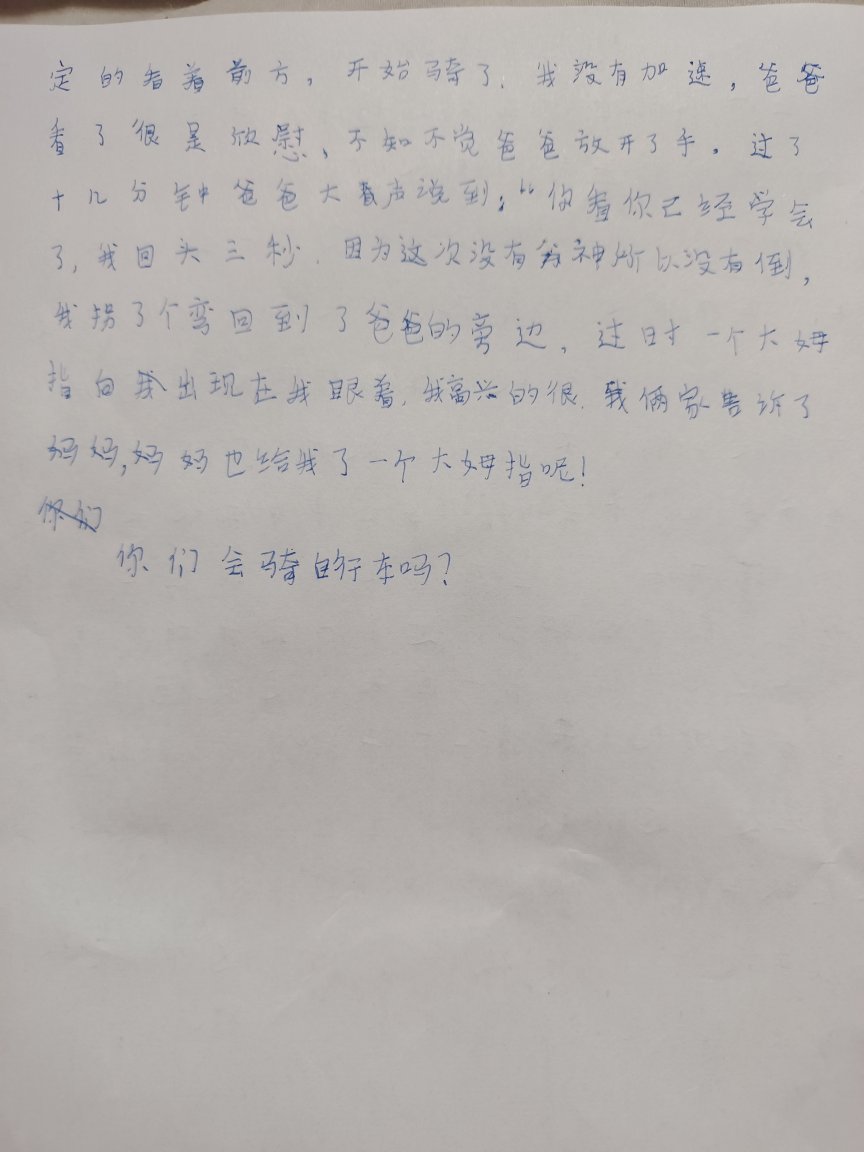 定的看着前方。开始骑了，我没有加速，爸爸
看了很是欣慰，不知不觉爸爸放开了手。过了
十几分钟爸爸大声说到：“你看你已经学会
了，我回头三秒，因为这次没有分神所以没有倒，
我拐了个弯回到了爸爸的旁边，过时一个大姆
指向我出现在我眼着，我高兴的很，我俩家告诉了
妈妈，妈妈也给我了一个大姆指呢！
你们会骑自行车吗？